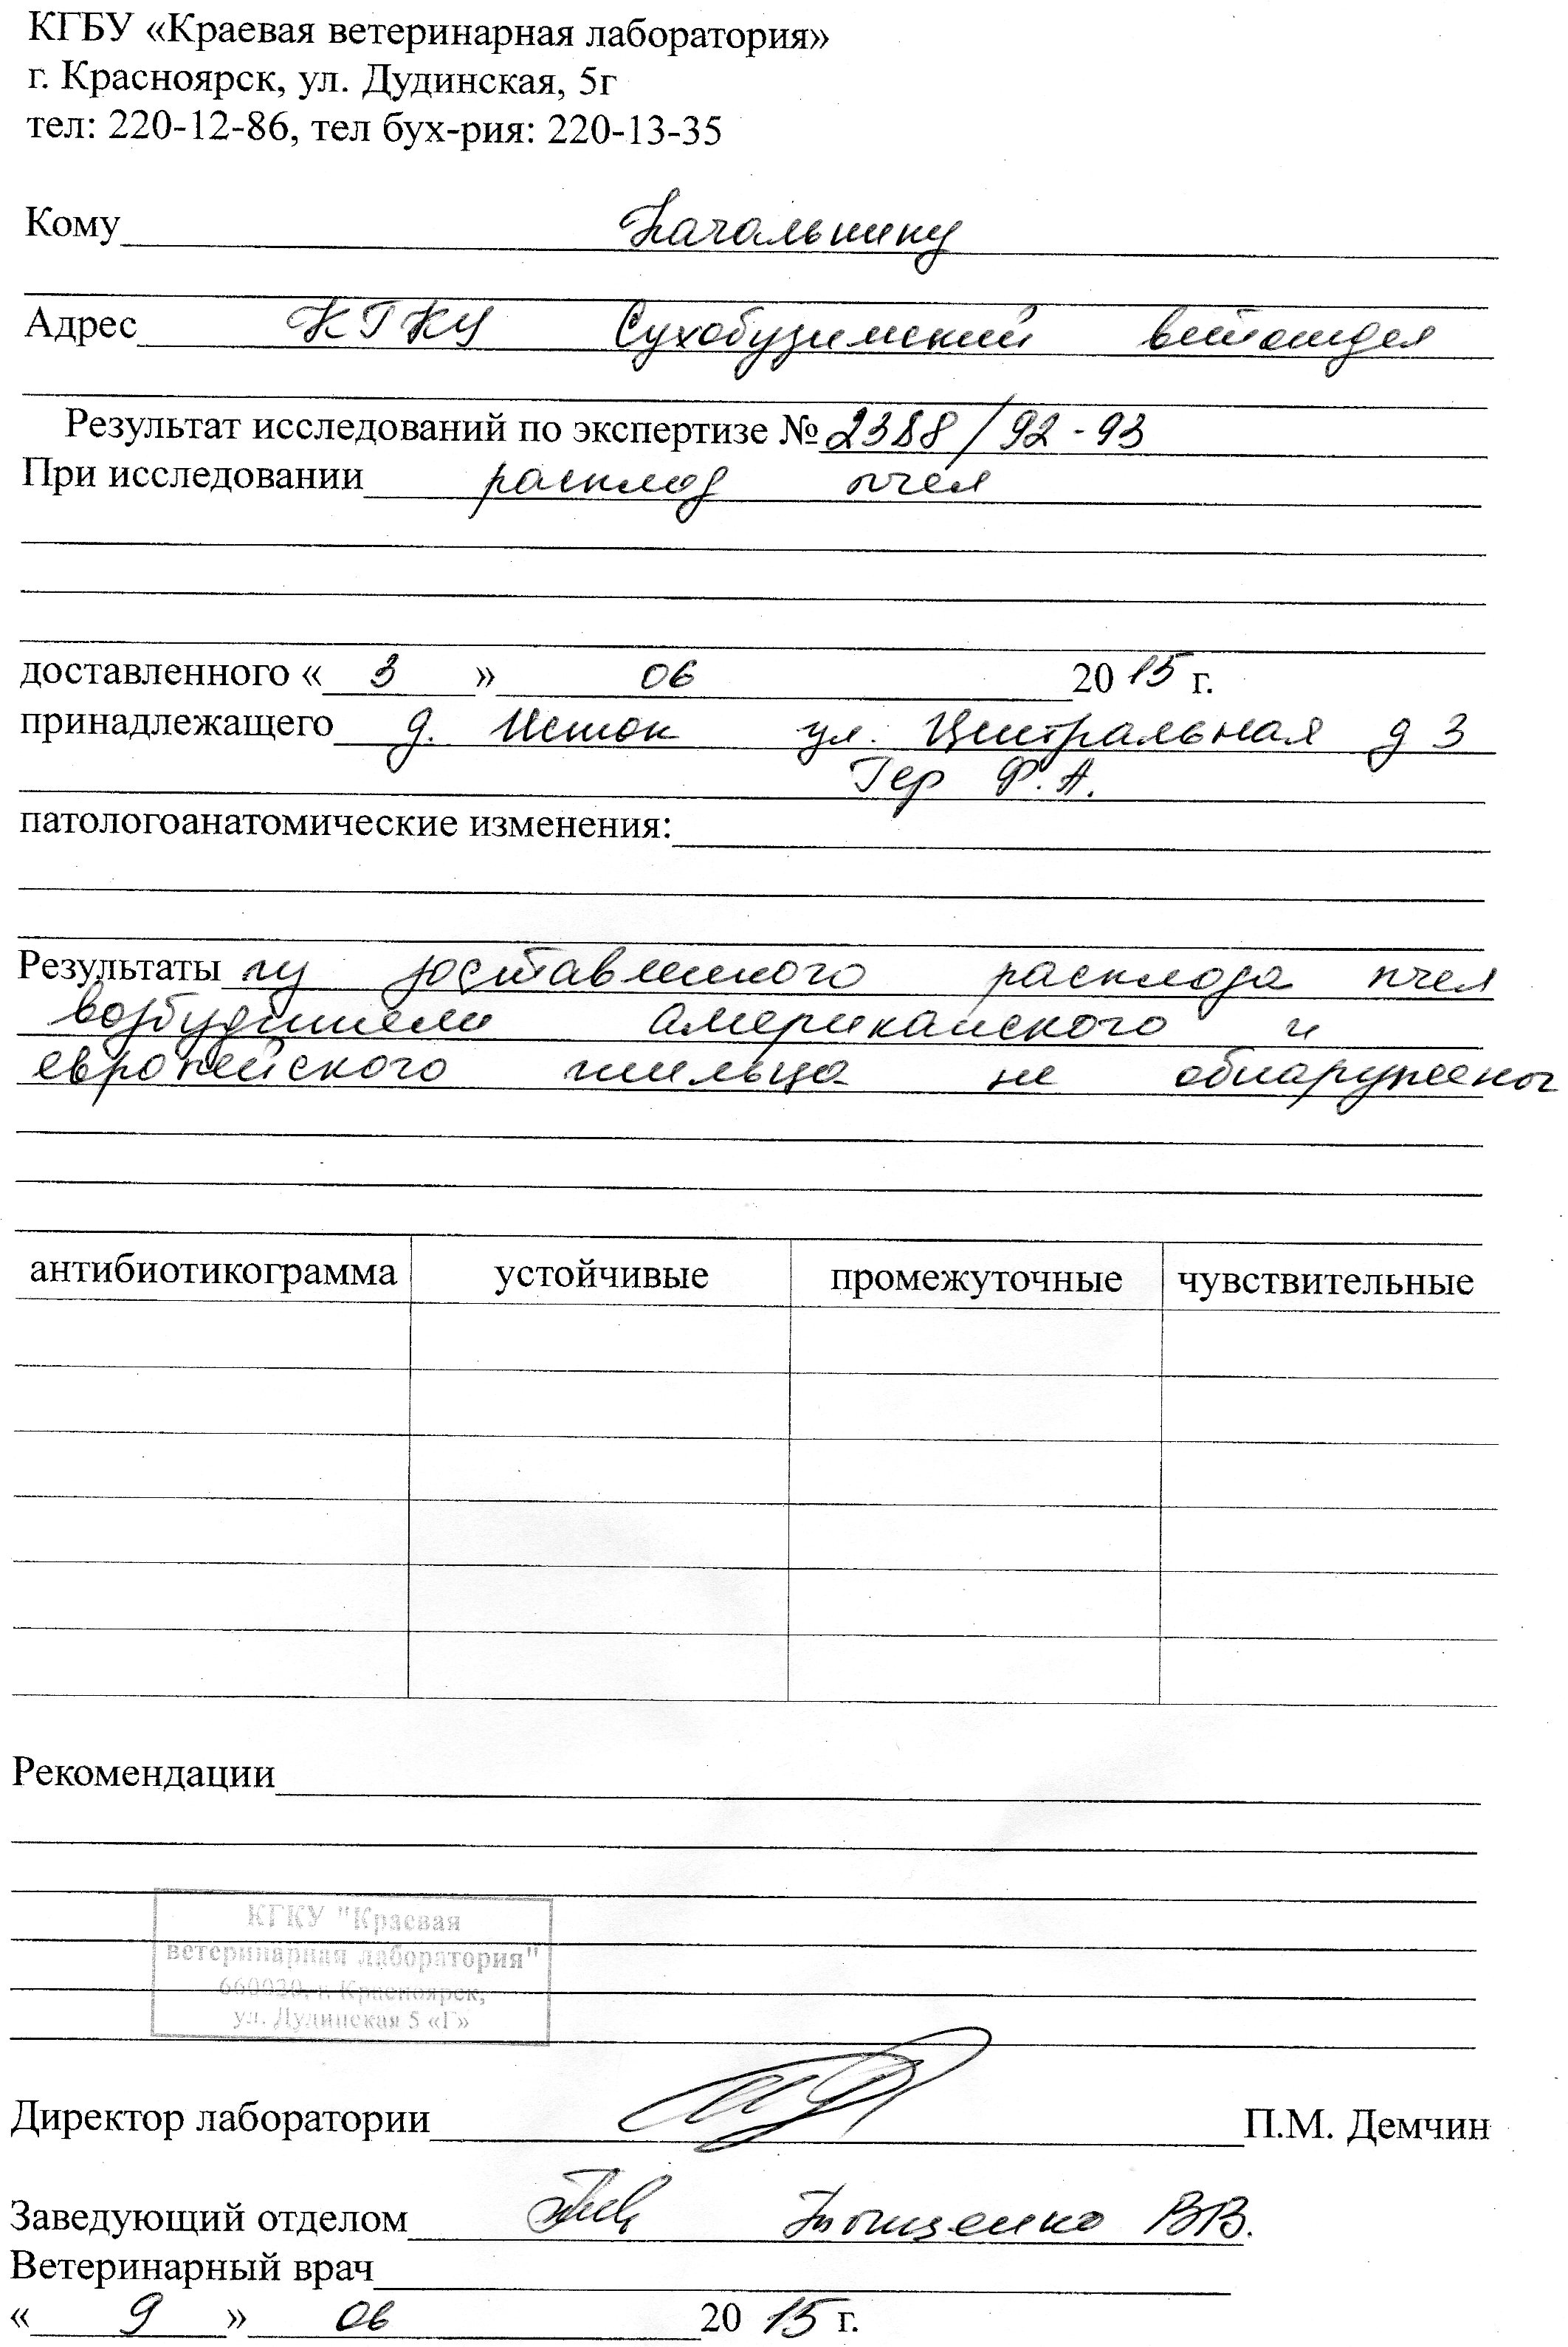 КГБУ «Краевая ветеринарная лаборатория»
г. Красноярск, ул. Дудинская, 5г
тел: 220-12-86, тел бух-рия: 220-13-35
Кому Начальнику
Адрес КГКУ Сухобузимский ветотдел
Результат исследований по экспертизе № 2388/92-93
При исследовании расплод пчел
доставленного « 3 » 06 2015 г.
принадлежащего д. Исток ул. Центральная д 3
Гер Ф.А.
патологоанатомические изменения:
Результаты из доставленного расплода пчел
возбудители американского и
европейского гнильца не обнаружены
антибиотикограмма устойчивые промежуточные чувствительные
Рекомендации
КГКУ "Краевая
ветеринарная лаборатория"
660020, г. Красноярск,
ул. Дудинская 5 «Г»
Директор лаборатории П.М. Демчин
Заведующий отделом В.В.
Ветеринарный врач
« 9 » 06 2015 г.